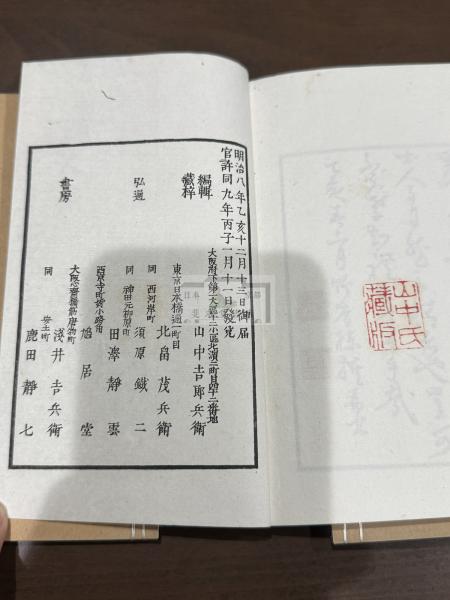 明治八年乙亥十二月十三日御届
官許同九年丙子一月十一日發兌
大阪府下第一大區十二小區北濱二町目四十二番地
編輯
藏梓
山中吉郎兵衛
東京日本橋通一町目
北畠茂兵衛
同 西河岸町
須原鐵二
弘通
同 神田元柳原町
田澤靜雲
西京寺町姉小路角
鳩居堂
書房
大阪心齋橋筋唐物町
淺井吉兵衛
同 安土町
鹿田靜七
山中氏
藏版